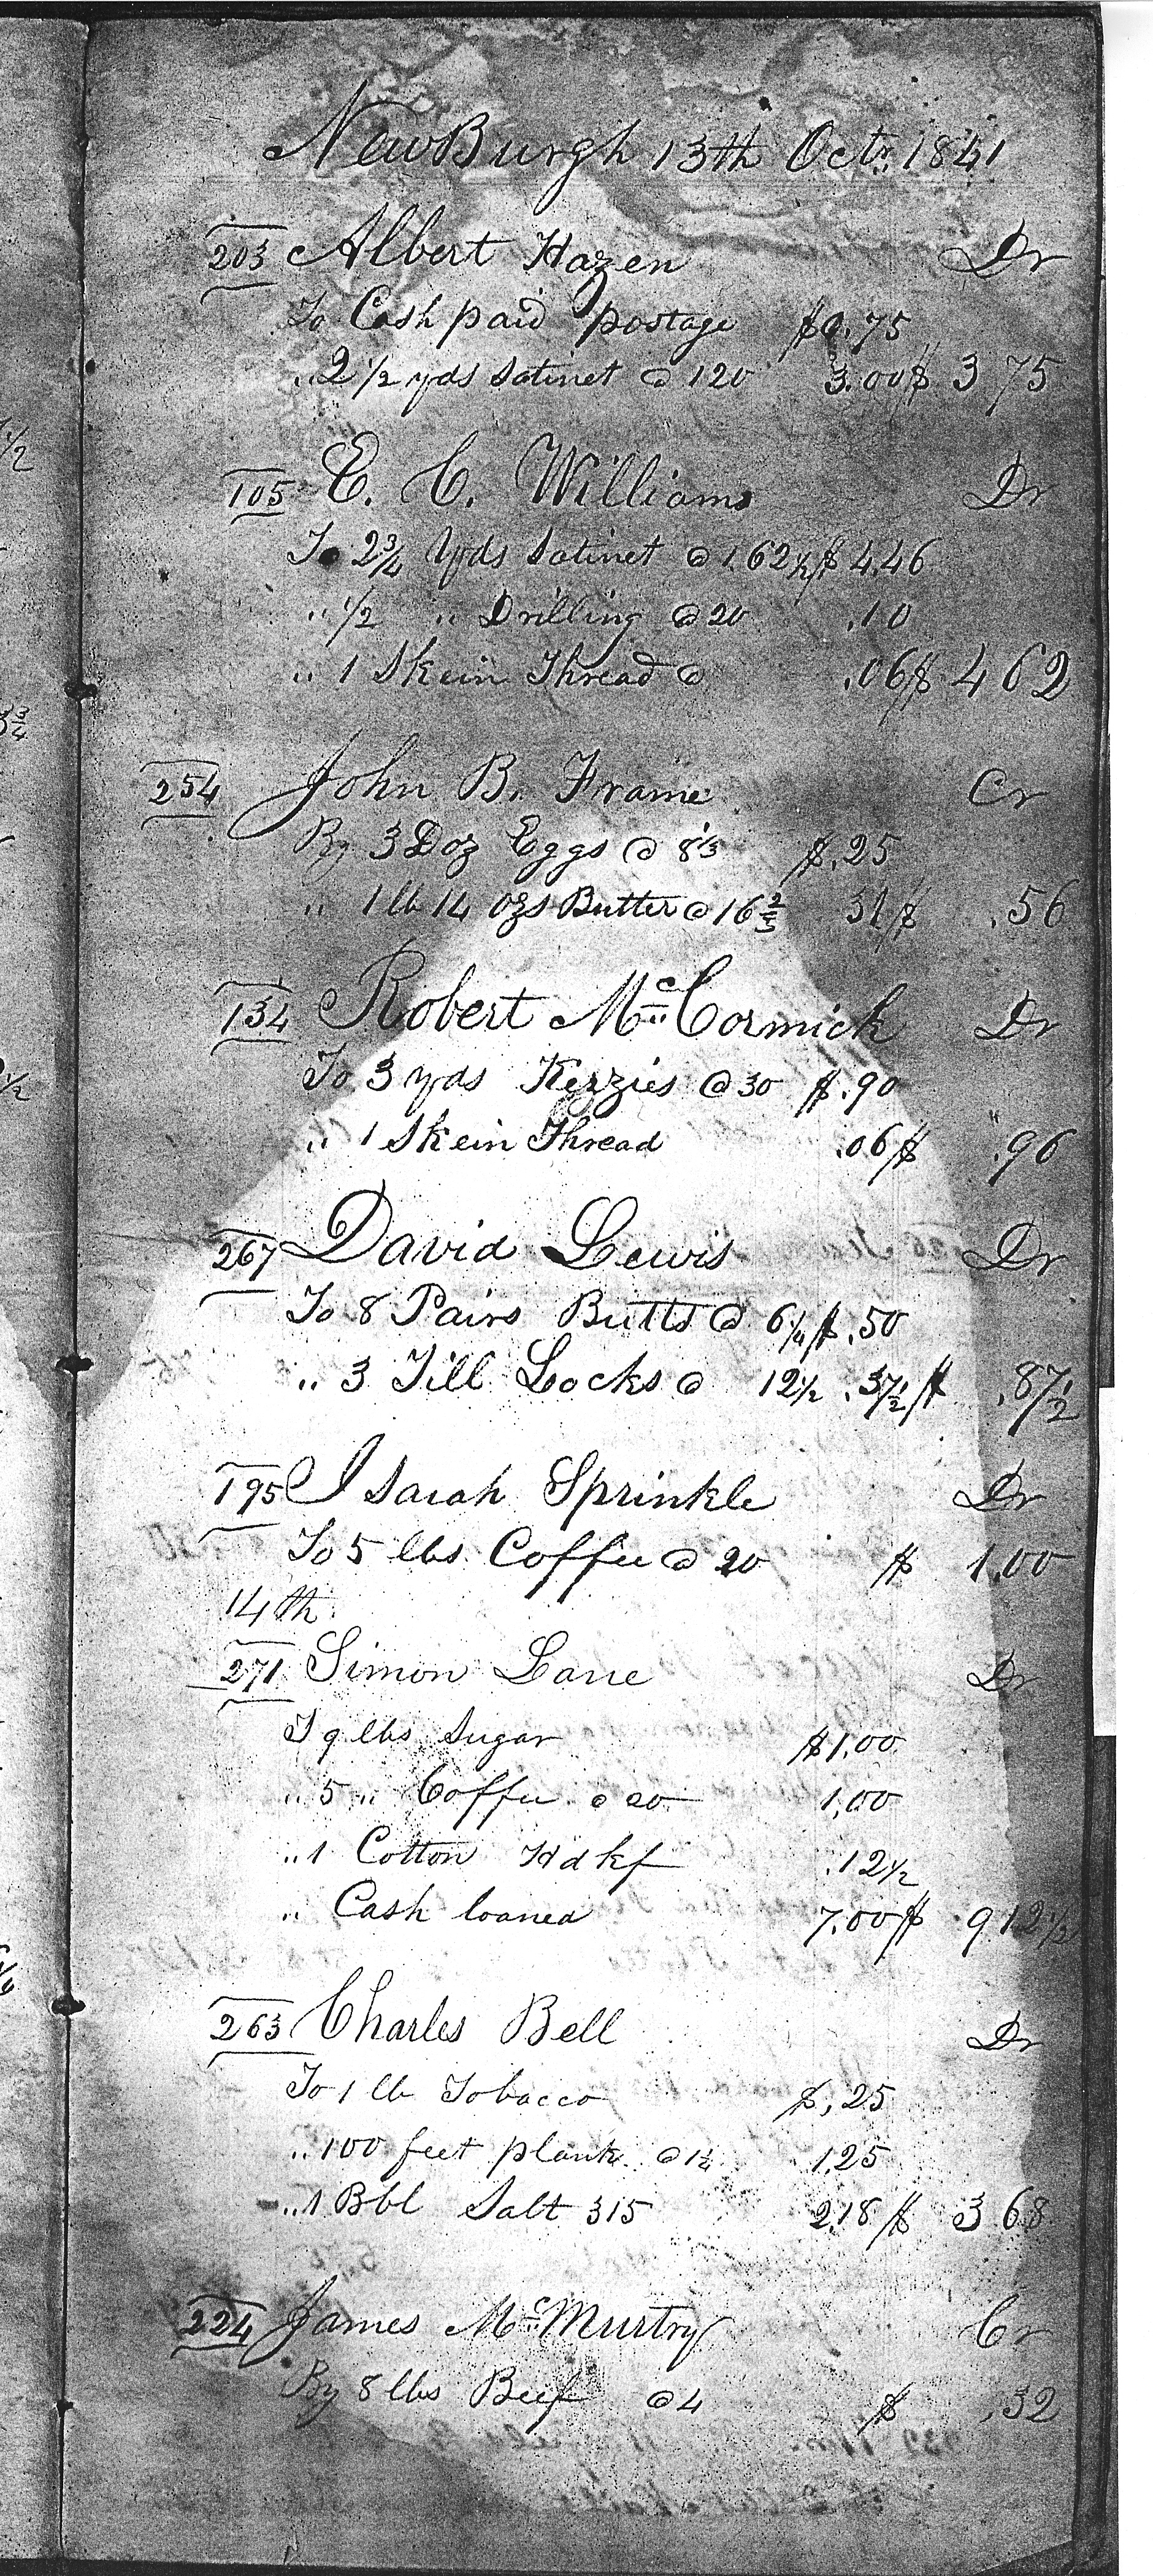 NewBurgh 13th Octr. 1841
203 Albert Hazen Dr
To Cash paid postage $0.75
" 2 1/2 yds Satinet @ 120 3.00 $ 3 75
105 E. C. Williams Dr
To 2 3/4 Yds Satinet @ 1.62 1/2 $ 4.46
" 1/2 " Drilling @ 20 .10
" 1 Skein Thread @ .06 $ 4 62
254 John B. Frame Cr
By 3 Doz Eggs @ 8 1/3 $.25
" 1 lb 14 ozs Butter @ 16 2/3 31 $ .56
134 Robert McCormick Dr
To 3 yds Kerzies @ 30 $.90
" 1 Skein Thread .06 $ .96
267 David Lewis Dr
To 8 Pairs Butts @ 6 1/4 $.50
" 3 Till Locks @ 12 1/2 .37 1/2 $ .87 1/2
195 Isaiah Sprinkle Dr
To 5 lbs Coffee @ 20 $ 1.00
14th
271 Simon Lane Dr
T 9 lbs Sugar $1.00
" 5 " Coffee @ 20 1.00
" 1 Cotton Hdkf .12 1/2
" Cash loaned 7.00 $ 9 12 1/2
263 Charles Bell Dr
To 1 lb Tobacco $.25
" 100 feet plank @ 1 1/4 1.25
" 1 Bbl Salt 315 2.18 $ 3 68
224 James McMurtry Cr
By 8 lbs Beef @ 4 $ .32